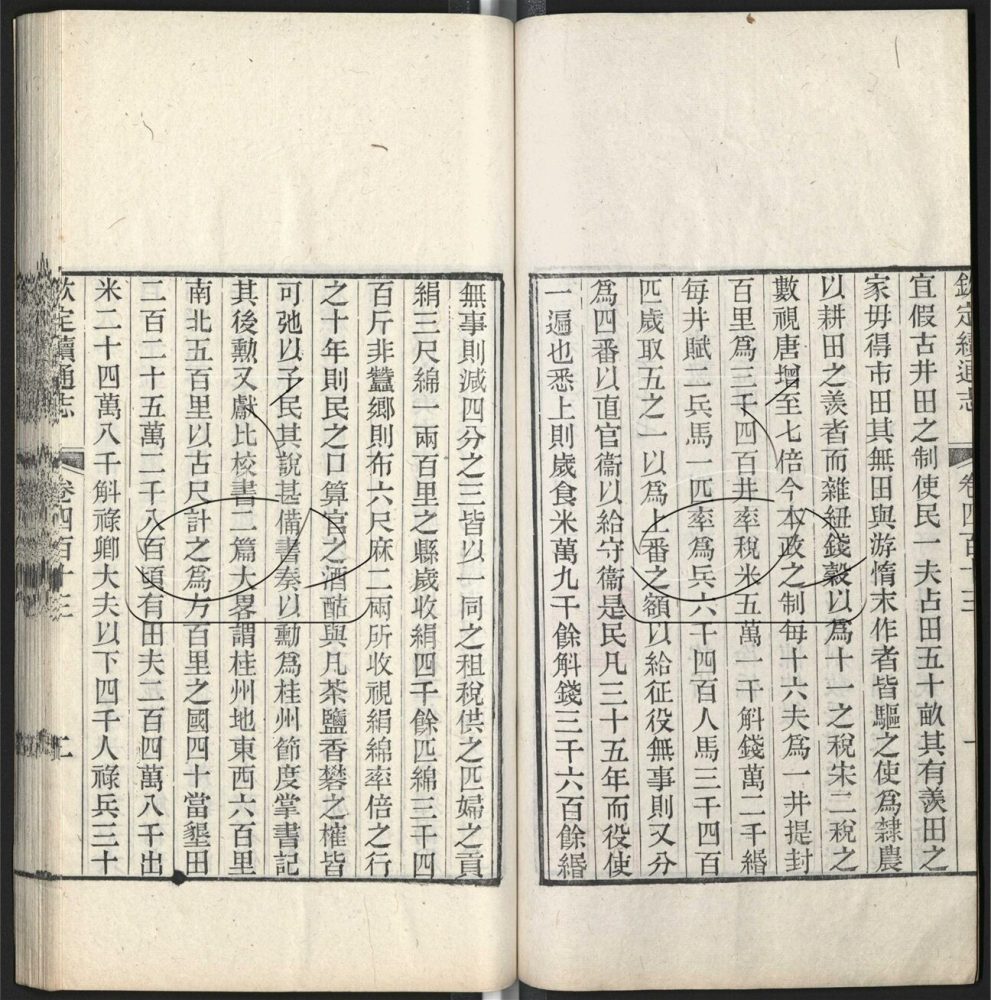 欽定續通志 卷四百十三 一
宜假古井田之制使民一夫占田五十畝其有羨田之
家毋得市田其無田與游惰末作者皆驅之使爲隸農
以耕田之羨者而雜紐錢穀以爲十一之稅宋二稅之
數視唐增至七倍今本政之制每十六夫爲一井提封
百里爲三千四百井率稅米五萬一千斛錢萬二千緡
每井賦二兵馬一匹率爲兵六千四百人馬三千四百
匹歲取五之一以爲上番之額以給征役無事則又分
爲四番以直官衞以給守衞是民凡三十五年而役使
一遍也悉上則歲食米萬九千餘斛錢三千六百餘緡
無事則減四分之三皆以一同之租稅供之匹婦之貢
絹三尺綿一兩百里之縣歲收絹四千餘匹綿三千四
百斤非蠶鄉則布六尺麻二兩所收視絹綿率倍之行
之十年則民之口算官之酒酤與凡茶鹽香礬之榷皆
可弛以予民其說甚備書奏以勳爲桂州節度掌書記
其後勳又獻比校書二篇大畧謂桂州地東西六百里
南北五百里以古尺計之爲方百里之國四十當墾田
二百二十五萬二千八百頃有田夫二百四萬八千出
米二十四萬八千斛祿卿大夫以下四千人祿兵三十
欽定續通志 卷四百十三 二